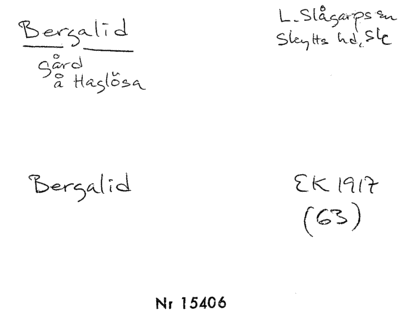 Bergalid
gård
å Haglösa
L. Slågarps sn
Skytts hd, Sk
Bergalid
EK 1917
(63)
Nr 15406